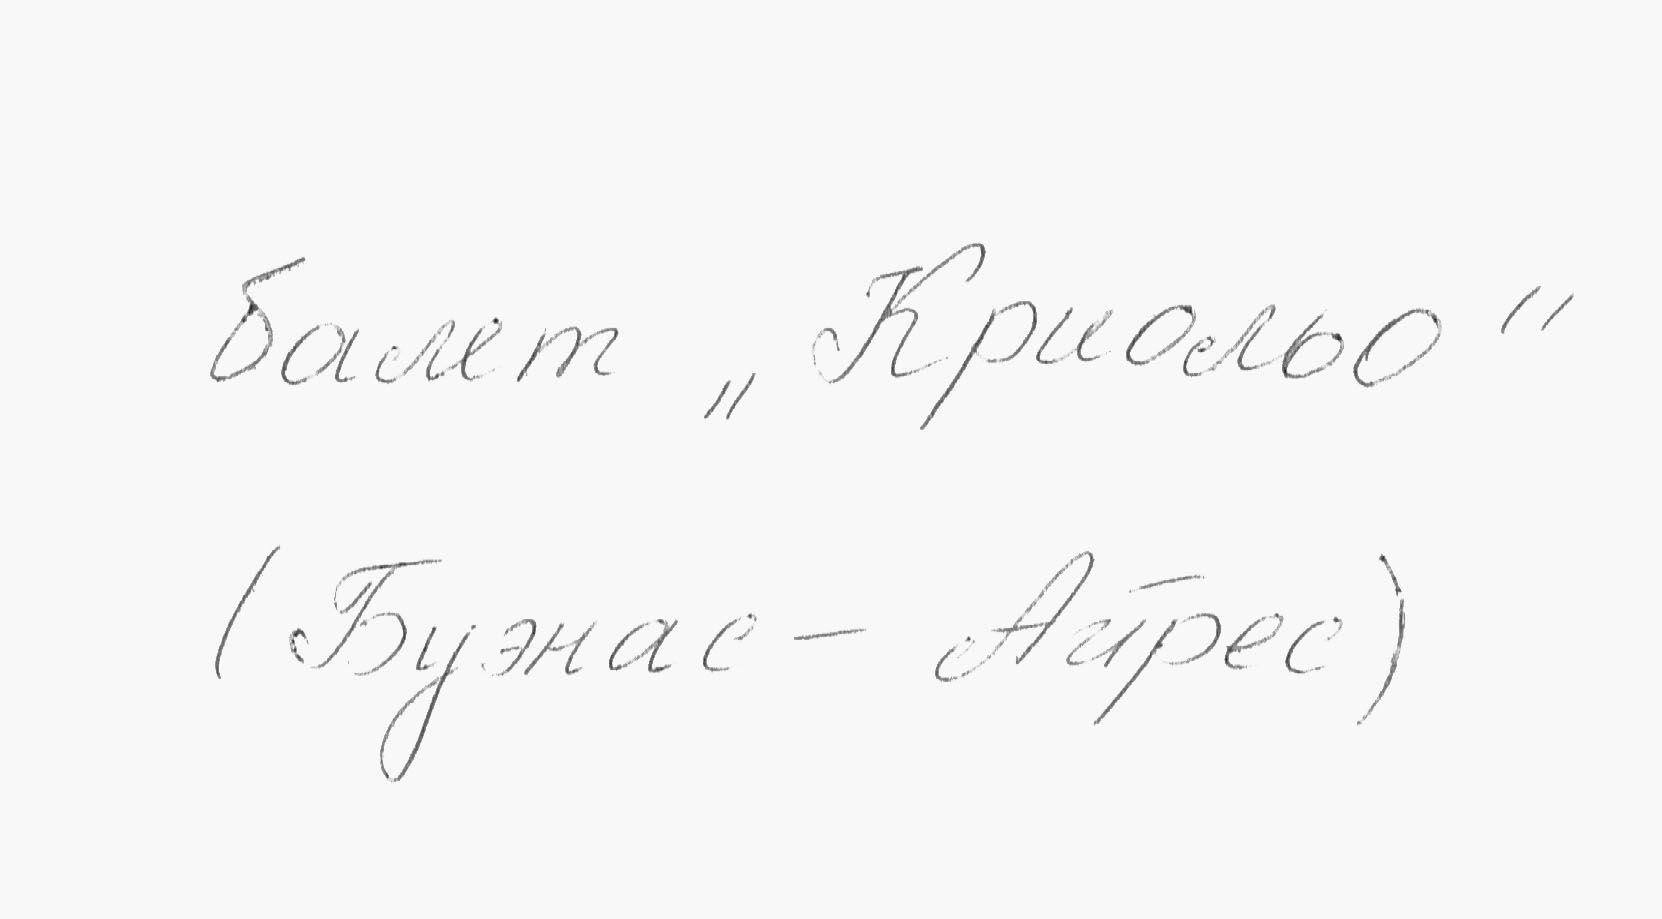 балет „Криольо“
(Буэнас - Айрес)